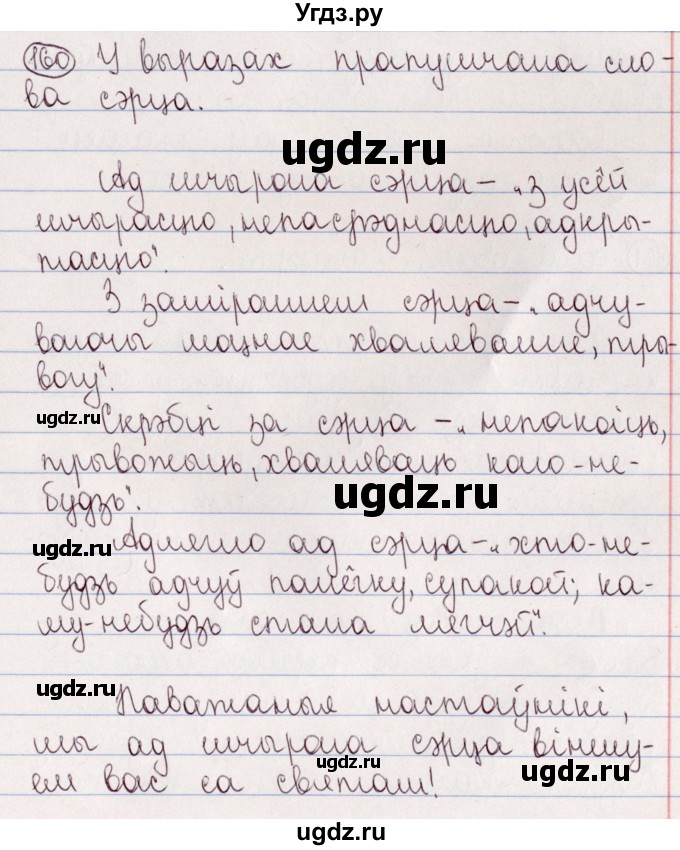 Угдз.ру
160 У выразах прапушчана сло-
ва сэрца.
ugdz.ru
Ад шчырага сэрца – „З усёй
шчырасцю, непасрэднасцю, адкры-
тасцю“.
З заміраннем сэрца – „адчу-
ваючы моцнае хваляванне, тры-
вогу“.
ugdz.ru
Скрэбці за сэрца – „непакоіць,
трывожыць, хваляваць каго-не-
будзь“.
ugdz.ru
ugdz.ru
Адлягло ад сэрца – „хто-не-
будзь адчуў палёгку, супакой; ка-
му-небудзь стала лягчэй“.
ugdz.ru
Паважаныя настаўнікі,
мы ад шчырага сэрца віншу-
ем вас са святам!
ugdz.ru
ugdz.ru